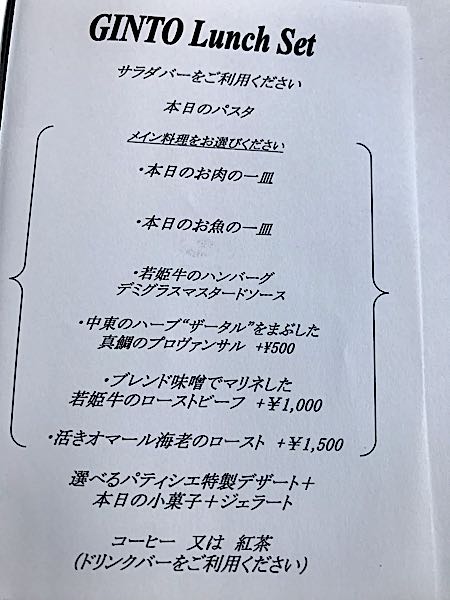 GINTO Lunch Set
サラダバーをご利用ください
本日のパスタ
メイン料理をお選びください
・本日のお肉の一皿
・本日のお魚の一皿
・若姫牛のハンバーグ
デミグラスマスタードソース
・中東のハーブ“ザータル”をまぶした
真鯛のプロヴァンサル +¥500
・ブレンド味噌でマリネした
若姫牛のローストビーフ +¥1,000
・活きオマール海老のロースト +¥1,500
選べるパティシエ特製デザート+
本日の小菓子+ジェラート
コーヒー 又は 紅茶
(ドリンクバーをご利用ください)